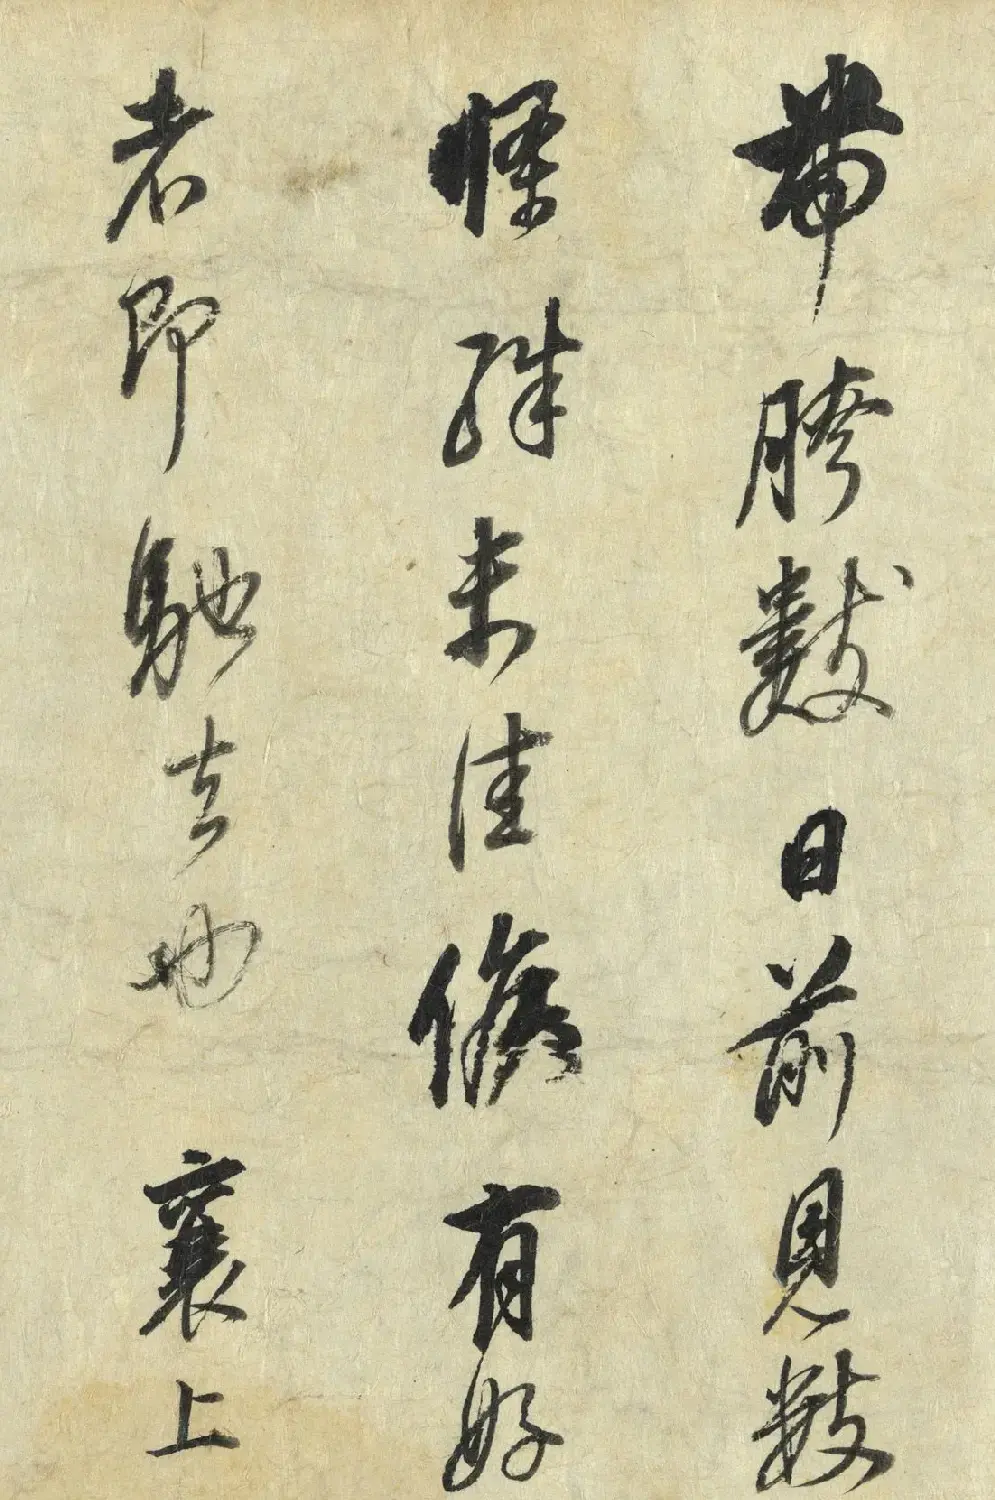 帶胯數日前見數
條殊未佳候有好
者即馳去也 襄上